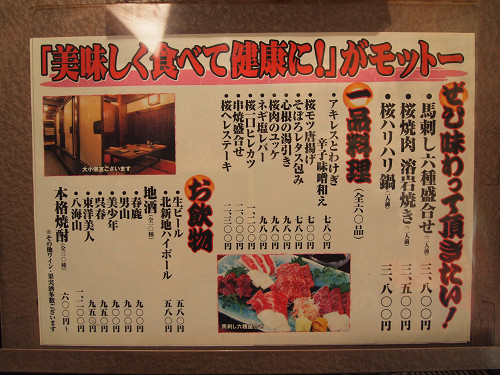 「美味しく食べて健康に!」がモットー
ぜひ味わって頂きたい!
・馬刺し六種盛合せ(二人前) 三、八〇〇円
・桜焼肉 溶岩焼き(二人前) 三、五〇〇円
・桜ハリハリ鍋(二人前) 三、八〇〇円
一品料理(全六〇品)
・アキレスとわけぎ
辛子味噌和え 七八〇円
・桜モツ唐揚げ 七〇〇円
・そぼろレタス包み 七八〇円
・心根の湯引き 九八〇円
・桜肉のユッケ 九八〇円
・ネギ塩レバー 九八〇円
・桜一口ヒレカツ
・串焼盛合せ
・桜ヘレステーキ 二、三〇〇円
お飲物
・生ビール 五八〇円
・北新地ハイボール 五八〇円
地酒
・春鹿 九〇〇円
・男山 九〇〇円
・美少年 九〇〇円
・呉春 九五〇円
・東洋美人 九五〇円
・八海山 一、二〇〇円
本格焼酎 六〇〇円〜
※その他ワイン・果実酒多数ございます
大小個室ございます
馬刺し六種盛合せ